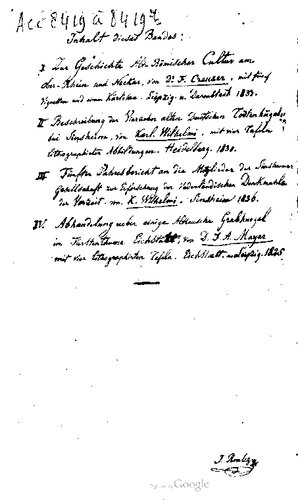 Acc 8419 à 8419z
Inhalt dieses Bandes:
I Zur Geschichte Alt-Römischer Cultur am
Ober-Rhein und Neckar, von Dr. F. Creuzer, mit fünf
Vignetten und einem Kärtchen. Leipzig u. Darmstadt 1833.
II Beschreibung der Vierzehn alten Deutschen Todtenhügel
bei Sinsheim, von Karl Wilhelmi, mit vier Tafeln
lithographirten Abbildungen. Heidelberg. 1830.
III Fünfter Jahresbericht an die Mitglieder der Sinsheimer
Gesellschaft zur Erforschung der Vaterländischen Denkmahle
der Vorzeit. von K. Wilhelmi. Sinsheim 1836.
IV. Abhandlung ueber einige Altdeutsche Grabhügel
im Fürstenthume Eichstätt, von D. F. A. Mayer
mit vier lithographirten Tafeln. Eichstätt. u. Leipzig. 1825
J. Roulez
Google